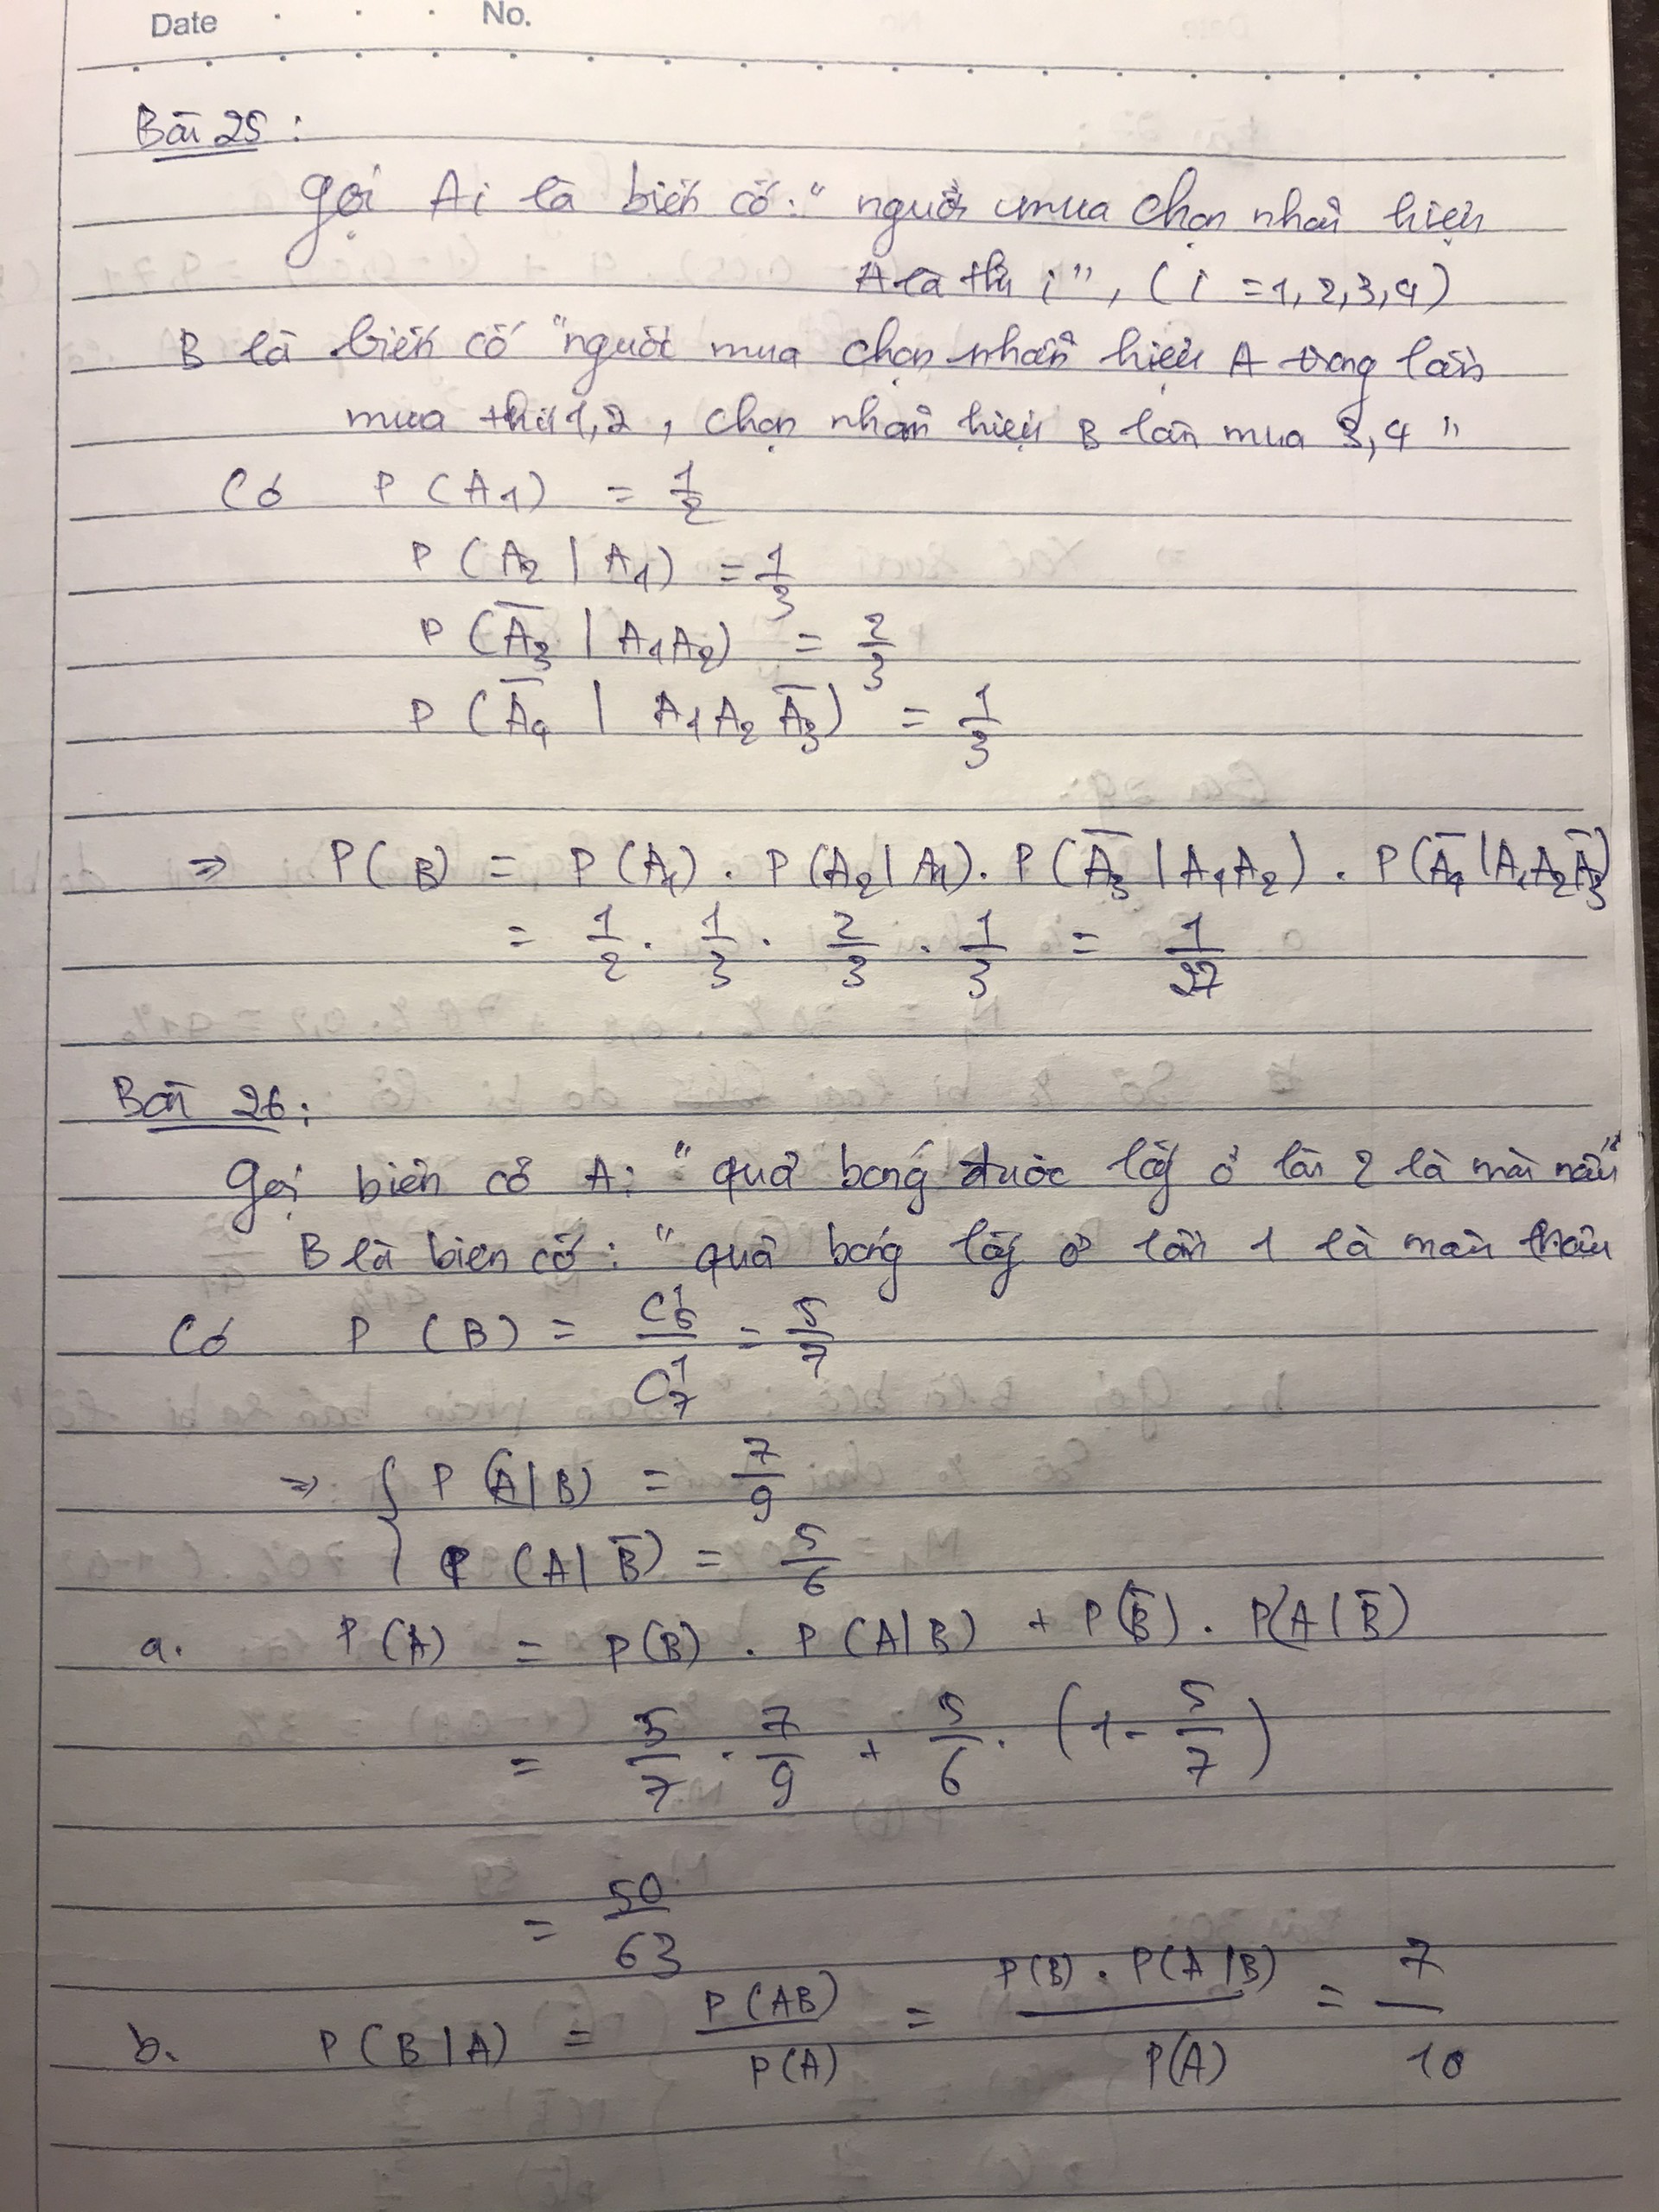 Date No.
Bài 25 :
Gọi Ai là biến cố: " người mua chọn nhãn hiệu
A là thứ i ", ( i = 1, 2, 3, 4 )
B là biến cố " người mua chọn nhãn hiệu A trong lần
mua thứ 1, 2 , chọn nhãn hiệu B lần mua 3, 4 "
Có P (A1) = 1/2
P (A2 | A1) = 1/3
P (A̅3 | A1A2) = 2/3
P (A̅4 | A1A2A̅3) = 1/3
=> P(B) = P(A1) . P(A2 | A1) . P(A̅3 | A1A2) . P(A̅4 | A1A2A̅3)
= 1/2 . 1/3 . 2/3 . 1/3 = 1/27
Bài 26 :
Gọi biến cố A: " quả bóng được lấy ở lần 2 là màu "
B là biến cố : " quả bóng lấy ở lần 1 là màu
Có P (B) = / C¹7 = 5/7
=> { P (A | B) = 7/9
P (A | B̅) = 5/6
a. P(A) = P(B) . P(A | B) + P(B̅) . P(A | B̅)
= 5/7 . 7/9 + 5/6 . (1 - 5/7)
= 50/63
b. P(B | A) = P(AB)/P(A) = P(B) . P(A | B)/P(A) = 7/10